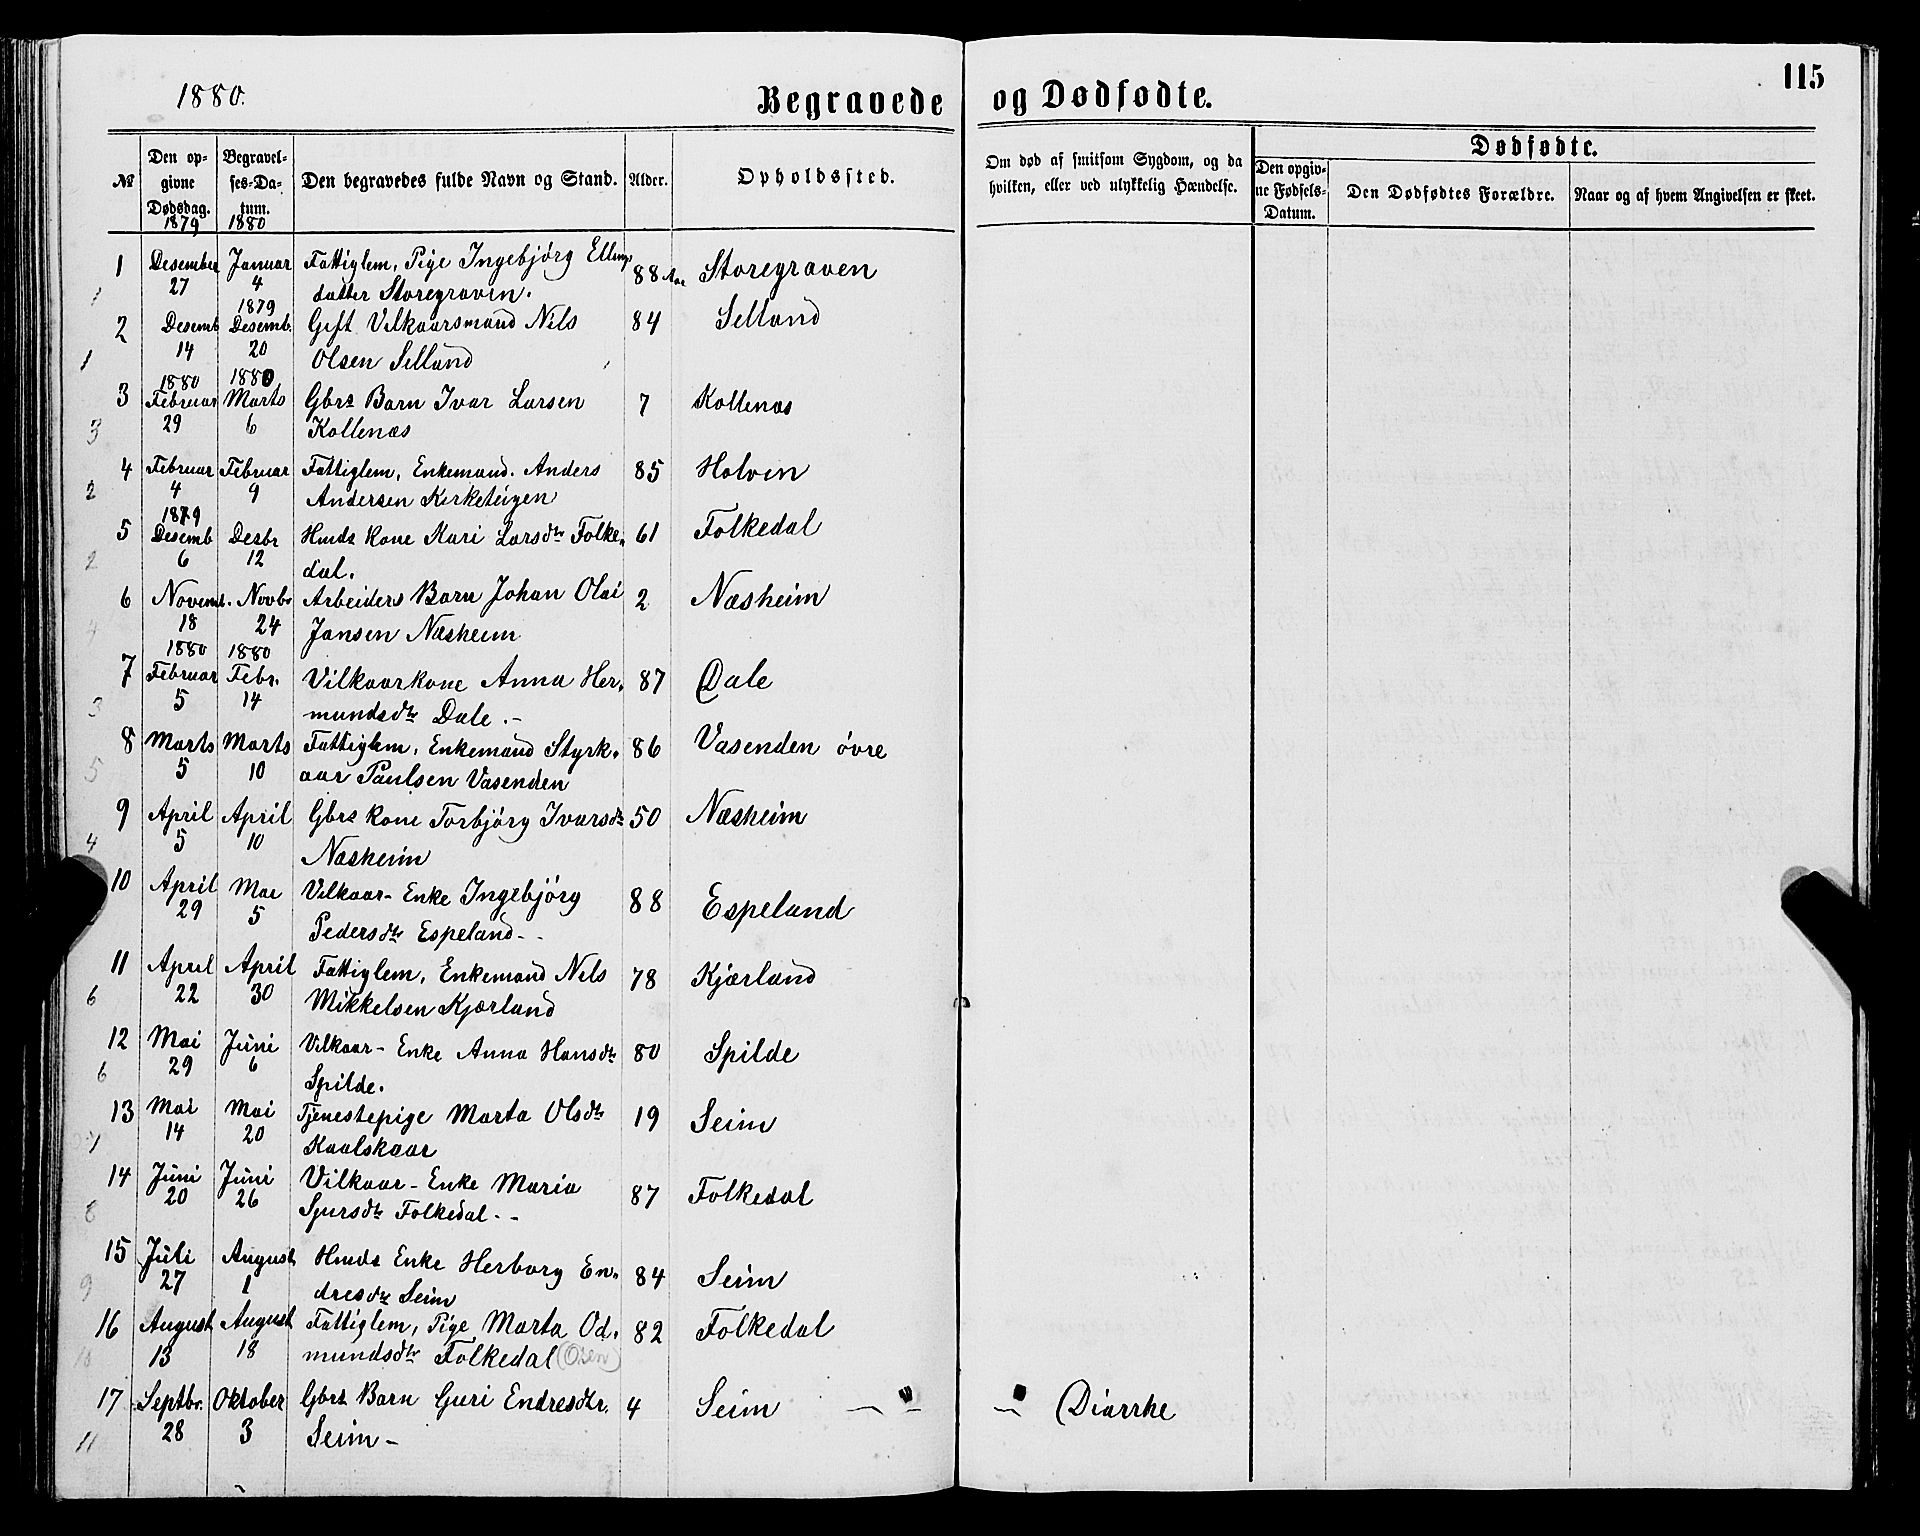 1880.
Begravede og Dødfødte.
115
№
Den opgivne Dødsdag. 1879
Begravelses-Datum. 1880
Den begravedes fulde Navn og Stand.
Alder.
Opholdssted.
Om død af smitsom Sygdom, og da hvilken, eller ved ulykkelig Hændelse.
Dødfødte.
Den opgivne Fødsels-Datum.
Den Dødfødtes Forældre.
Naar og af hvem Angivelsen er skeet.
1 Desember Januar Fattiglem, Pige Ingebjørg Ellings 88 Aar Storegraven
1 27 4 datter Storegraven.
1879
2 Desemb. Desemb. Gift Vilkaarsmand Nils 84 Selland
1 14 20 Olsen Selland
1880 1880
3 Februar Marts Gbrs Barn Ivar Larsen 7 Kollenæs
3 29 6 Kollenæs
4 Februar Februar Fattiglem, Enkemand. Anders 85 Holven
2 4 9 Andersen Kirketeigen
1879
5 Desemb Desbr Hmds Kone Kari Larsdtr Folke- 61 Folkedal
2 6 12 dal.
6 Novemb. Novbr Arbeiders Barn Johan Olai 2 Næsheim
4 18 24 Jansen Næsheim
1880 1880
7 Februar Febr. Vilkaarkone Anna Her- 87 Dale
3 5 14 mundsdtr Dale.-
8 Marts Marts Fattiglem, Enkemand Styrk- 86 Vasenden øvre
5 5 10 aar Paulsen Vasenden
9 April April Gbrs Kone Torbjørg Ivarsdtr 50 Næsheim
4 5 10 Næsheim
10 April Mai Vilkaar- Enke Ingebjørg 88 Espeland
29 5 Pedersdtr Espeland--
11 April April Fattiglem, Enkemand Nils 78 Kjærland
6 22 30 Mikkelsen Kjærland
12 Mai Juni Vilkaar- Enke Anna Hansdtr 80 Spilde
6 29 6 Spilde.
13 Mai Mai Tjenestepige Marta Olsdtr 19 Seim
14 20 Kaalskaar
14 Juni Juni Vilkaar- Enke Maria 87 Folkedal
8 20 26 Sjursdtr Folkedal.-
15 Juli August Hmds Enke Herborg En- 84 Seim
9 27 1 dresdtr Seim
16 August August Fattiglem, Pige Marta Od- 82 Folkedal
10 13 18 mundsdtr Folkedal (Osen)
17 Septbr. Oktober Gbrs Barn Guri Endresdtr. 4 Seim Diarrhe
11 28 3 Seim-